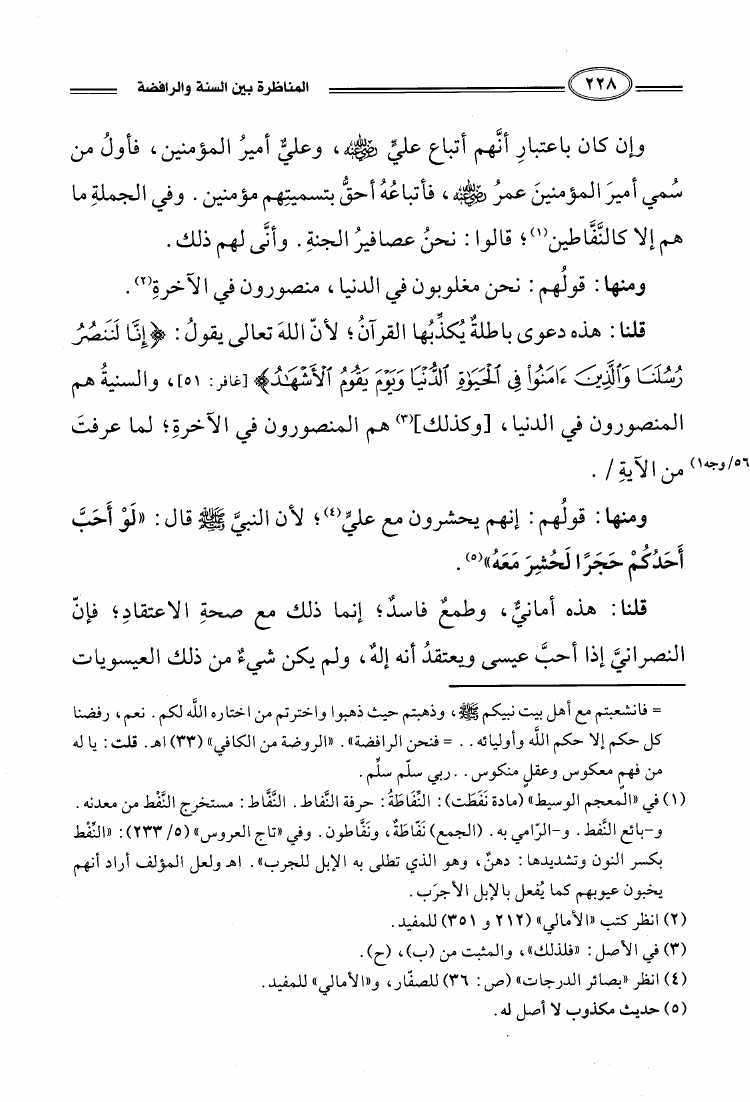 ٢٢٨ المناظرة بين السنة والرافضة
وإن كان باعتبارِ أنَّهم أتباع عليٍّ رضي الله عنه، وعليٌّ أميرُ المؤمنين، فأولُ من
سُمي أميرَ المؤمنينَ عمرُ رضي الله عنه، فأتباعُهُ أحقُّ بتسميتِهم مؤمنين. وفي الجملةِ ما
هم إلا كالنَّفَّاطين(١)؛ قالوا: نحنُ عصافيرُ الجنةِ. وأنَّى لهم ذلك.
ومنها: قولُهم: نحن مغلوبون في الدنيا، منصورون في الآخرةِ(٢).
قلنا: هذه دعوى باطلةٌ يُكذِّبُها القرآنُ؛ لأنّ اللهَ تعالى يقولُ: ﴿إِنَّا لَنَنصُرُ
رُسُلَنَا وَٱلَّذِينَ ءَامَنُوا۟ فِى ٱلْحَيَوٰةِ ٱلدُّنْيَا وَيَوْمَ يَقُومُ ٱلْأَشْهَٰدُ﴾ [غافر: ٥١]، والسنيةُ هم
المنصورون في الدنيا، [وكذلك](٣) هم المنصورون في الآخرةِ؛ لما عرفتَ
من الآيةِ /. ٥٦/وجه١)
ومنها: قولُهم: إنهم يحشرون مع عليٍّ(٤)؛ لأن النبيَّ ﷺ قال: «لَوْ أَحَبَّ
أَحَدُكُمْ حَجَرًا لَحُشِرَ مَعَهُ»(٥).
قلنا: هذه أمانيٌّ، وطمعٌ فاسدٌ؛ إنما ذلك مع صحةِ الاعتقادِ؛ فإنّ
النصرانيَّ إذا أحبَّ عيسى ويعتقدُ أنه إلهٌ، ولم يكن شيءٌ من ذلك العيسويات
= فانشعبتم مع أهل بيت نبيكم ﷺ، وذهبتم حيث ذهبوا واخترتم من اختاره اللَّه لكم. نعم، رفضنا
كل حكم إلا حكم اللَّه وأوليائه.. = فنحن الرافضة». «الروضة من الكافي» (٣٣) اهـ. قلت: يا له
من فهمٍ معكوس وعقلٍ منكوس.. ربي سلّم سلِّم.
(١) في «المعجم الوسيط» (مادة نَفَطَت): النِّفَاطَةُ: حرفة النَّفاط. النَّفَّاط: مستخرج النَّفْط من معدنه.
و-بائع النَّفط. و-الرّامي به. (الجمع) نَفّاطَةٌ، ونَفَّاطون. وفي «تاج العروس» (٥/ ٢٣٣): «النَّفْط
بكسر النون وتشديدها: دهنٌ، وهو الذي تطلى به الإبل للجرب». اهـ ولعل المؤلف أراد أنهم
يخبون عيوبهم كما يُفعل بالإبل الأجرَب.
(٢) انظر كتب «الأمالي» (٢١٢ و ٣٥١) للمفيد.
(٣) في الأصل: «فلذلك»، والمثبت من (ب)، (ح).
(٤) انظر «بصائر الدرجات» (ص: ٣٦) للصفّار، و«الأمالي» للمفيد.
(٥) حديث مكذوب لا أصل له.